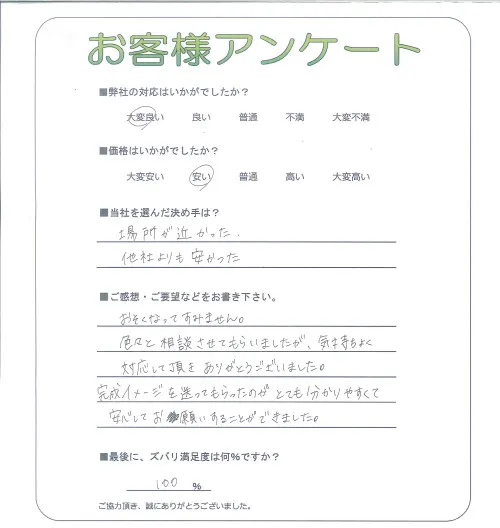 お客様アンケート
■弊社の対応はいかがでしたか？
大変良い 良い 普通 不満 大変不満
■価格はいかがでしたか？
大変安い 安い 普通 高い 大変高い
■当社を選んだ決め手は？
場所が近かった.
他社よりも安かった
■ご感想・ご要望などをお書き下さい。
おそくなってすみません。
色々と相談させてもらいましたが、気持ちよく
対応して頂きありがとうございました。
完成イメージを送ってもらったのがとても分かりやすくて
安心してお願いすることができました。
■最後に、ズバリ満足度は何%ですか？
100 %
ご協力頂き、誠にありがとうございました。